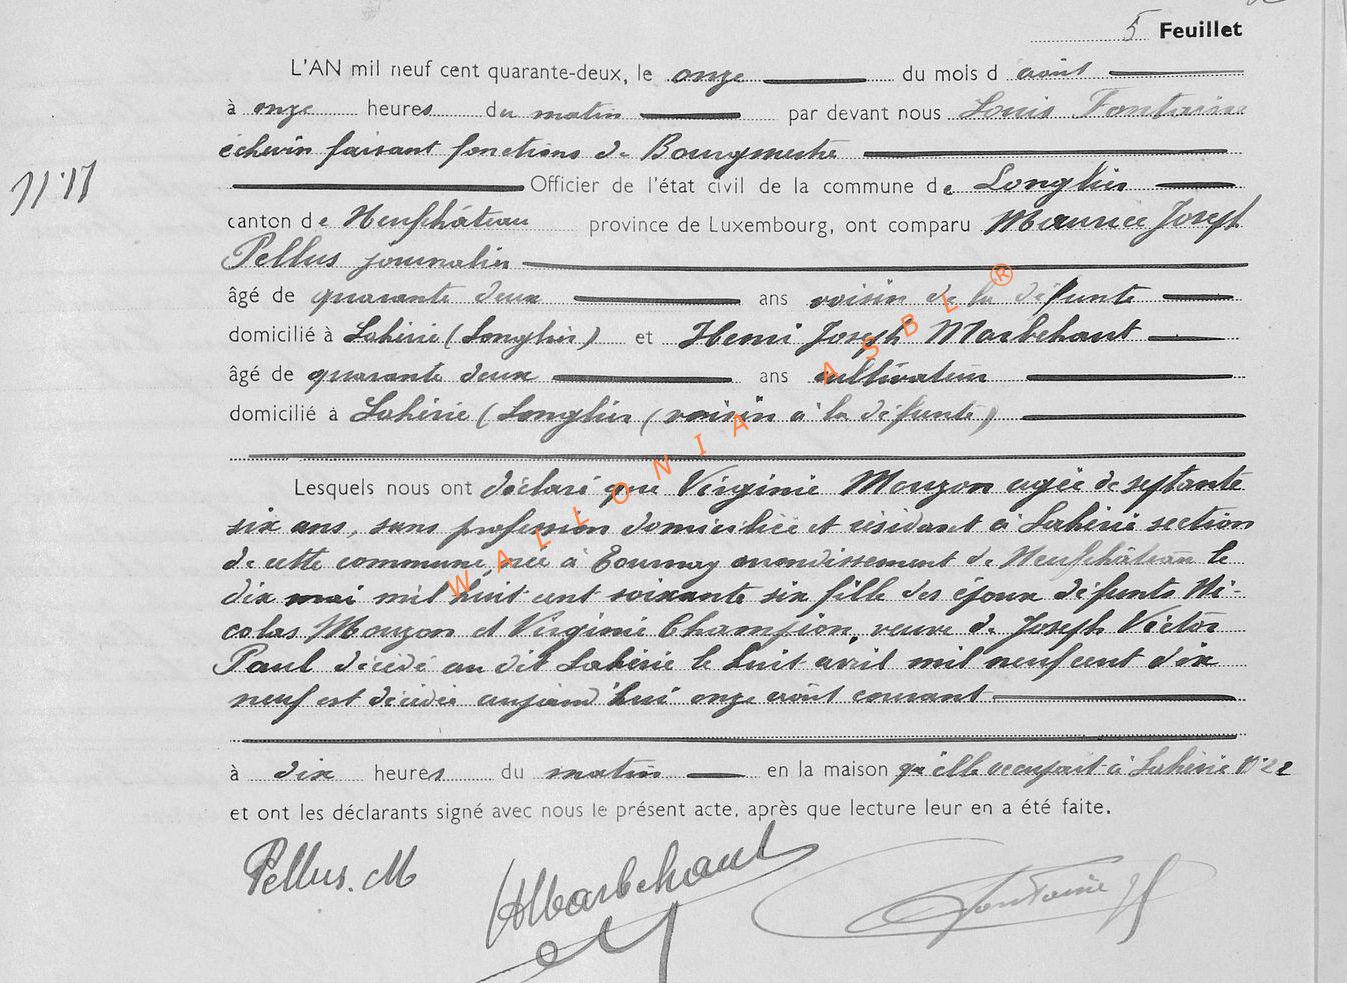 5 Feuillet
L'AN mil neuf cent quarante-deux, le onze du mois d août
à onze heures du matin par devant nous Louis Fontaine
échevin faisant fonctions de Bourgmestre
N° 17
Officier de l'état civil de la commune de Longlier
canton de Neufchâteau province de Luxembourg, ont comparu Maurice Joseph
Pellus journalier
âgé de quarante deux ans voisin de la défunte
domicilié à Lahérie (Longlier) et Henri Joseph Marbehant
âgé de quarante deux ans cultivateur
domicilié à Lahérie (Longlier (voisin à la défunte)
Lesquels nous ont déclaré que Virginie Mouzon agée de septante
six ans, sans profession domiciliée et résidant à Lahérie section
de cette commune, née à Tournay arrondissement de Neufchâteau le
dix mai mil huit cent soixante six fille des époux défunts Ni-
colas Mouzon et Virginie Champion, veuve de Joseph Victor
Paul décédé au dit Lahérie le huit avril mil neuf cent dix
neuf est décédée aujourd'hui onze août courant
à dix heures du matin en la maison qu'elle occupait à Lahérie N° 22
et ont les déclarants signé avec nous le présent acte, après que lecture leur en a été faite.
Pellus. M
HMarbehant
Fontaine
WALLONIA ASBL ®